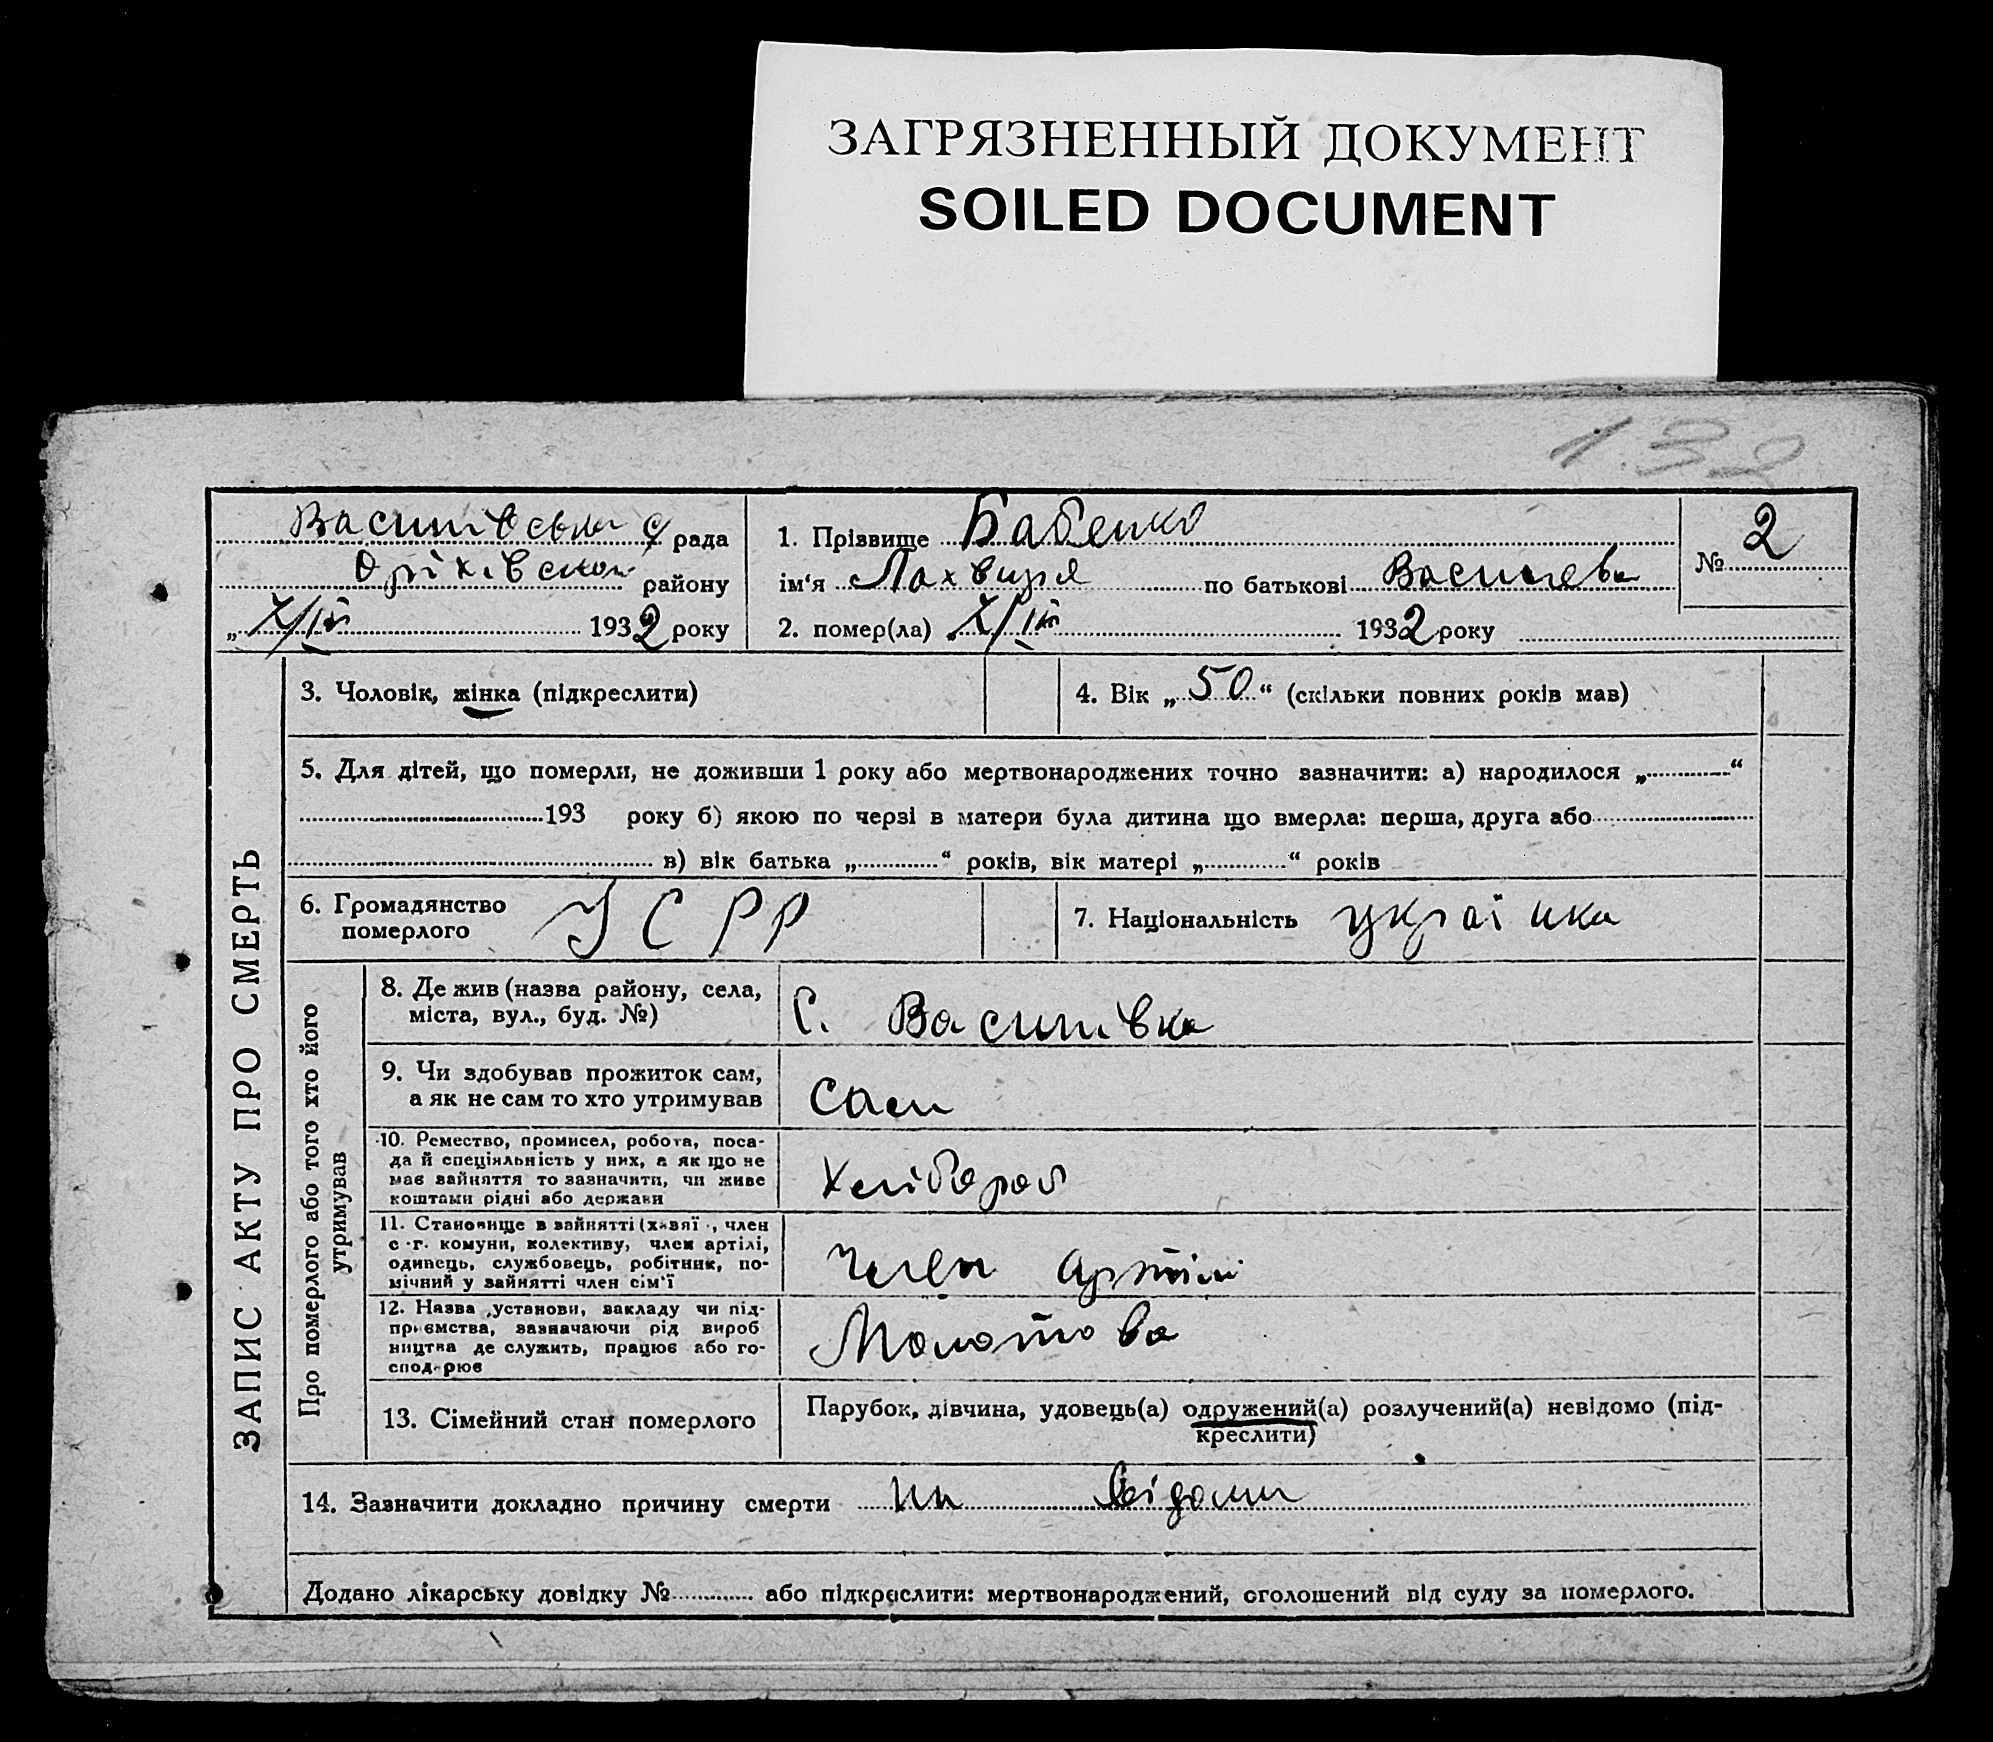 ЗАГРЯЗНЕННЫЙ ДОКУМЕНТ
SOILED DOCUMENT
132
Василівська с рада
Оріхівського району
„ X/ІІ 1932 року
1. Прізвище Бабенко
ім‘я по батькові Василева
2. помер(ла) X/ІІ 1932 року
№ 2
ЗАПИС АКТУ ПРО СМЕРТЬ
3. Чоловік, жінка (підкреслити)
4. Вік „ 50 “ (скільки повних років мав)
5. Для дітей, що померли, не доживши 1 року або мертвонароджених точно зазначити: а) народилося „ “
193 року б) якою по черзі в матери була дитина що вмерла: перша, друга або
в) вік батька „ “ років, вік матері „ “ років
6. Громадянство
померлого УСРР
7. Національність українка
Про померлого або того хто його
утримував
8. Де жив (назва району, села,
міста, вул., буд. №)
С. Василівка
9. Чи здобував прожиток сам,
а як не сам то хто утримував
Сам
10. Ремество, промисел, робота, поса-
да й спеціяльність у них, а як що не
має зайняття то зазначити, чи живе
коштами рідні або держави
Хлібороб
11. Становище в зайнятті (хазяї , член
с-г. комуни, колективу, член артілі,
одинець, службовець, робітник, по-
мічний у зайнятті член сім'ї
Член артілі
12. Назва установи, закладу чи під-
приємства, зазначаючи рід вироб
ництва де служить, працює або го-
сподарює
Молотова
13. Сімейний стан померлого
Парубок, дівчина, удовець(а) одружений(а) розлучений(а) невідомо (під-
креслити)
14. Зазначити докладно причину смерти Ни відоми
Додано лікарську довідку № або підкреслити: мертвонароджений, оголошений від суду за померлого.